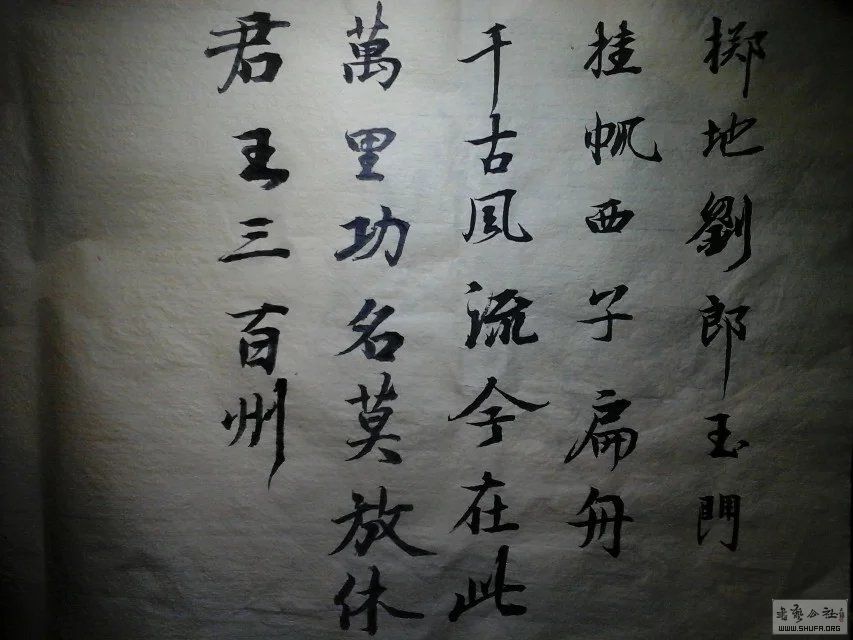 掷地劉郎玉門
挂帆西子扁舟
千古風流今在此
萬里功名莫放休
君王三百州
WWW.SHUFA.ORG